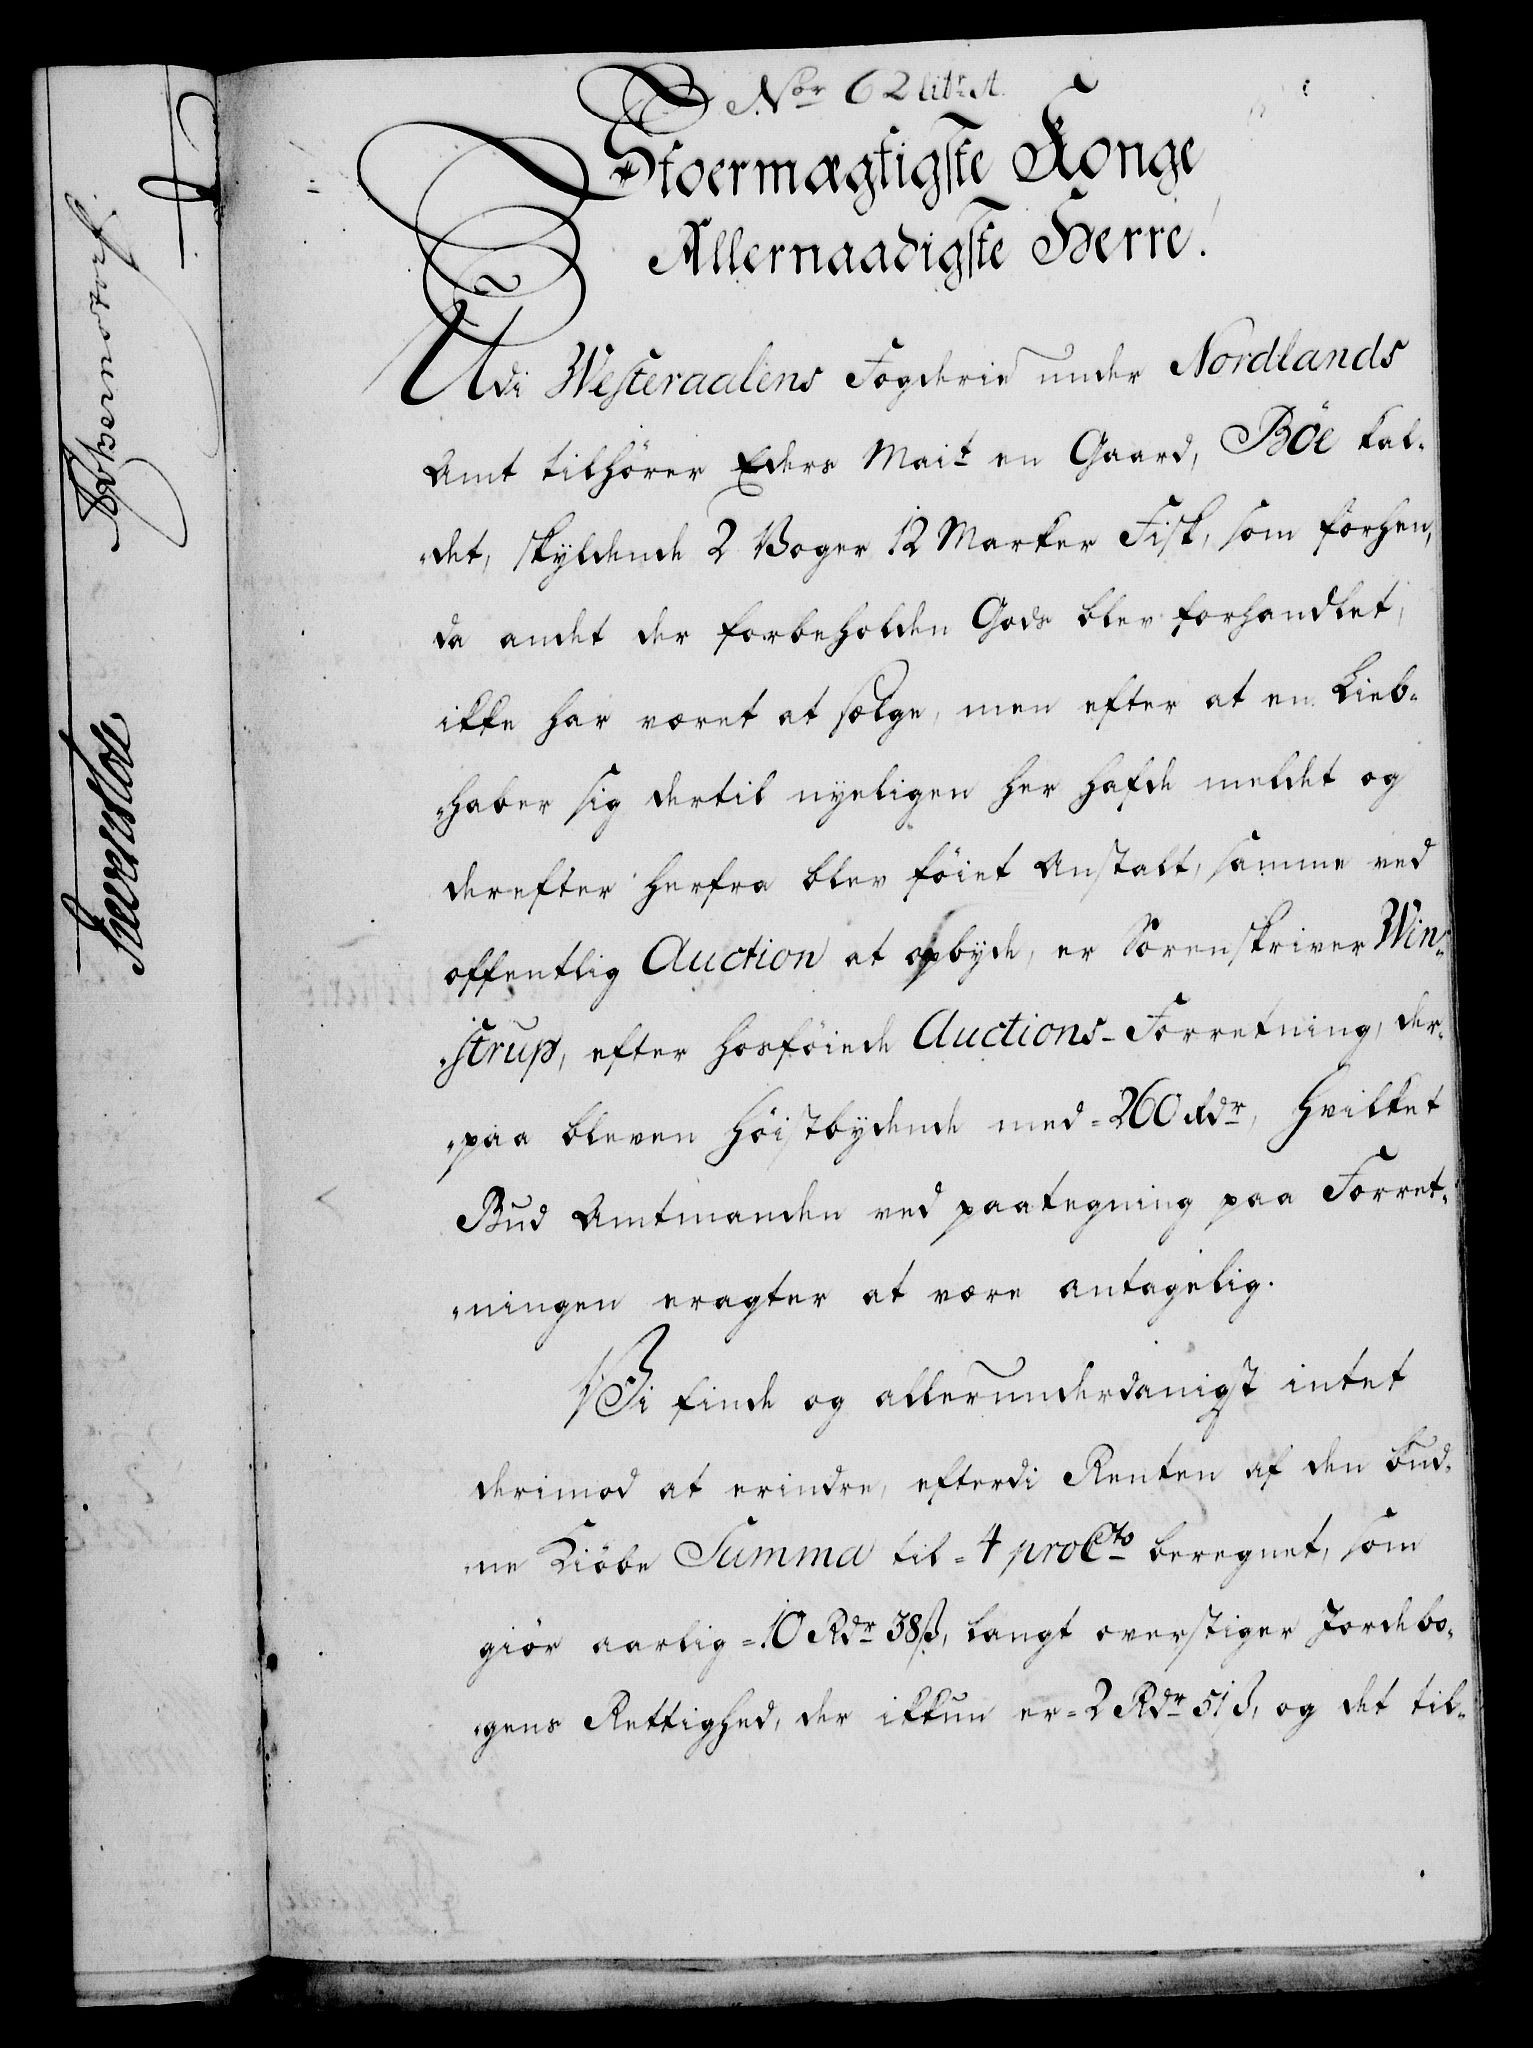 Nor 62 litr. A.
Stoermægtigste Konge
Allernaadigste Herre!
Udi Westeraalens Fogderie under Nordlands
Amt tilhører Eders Mait en Gaard, Böe kal-
det, skyldende 2 Voger 12 Marker Fisk, som forhen,
da andet der forbeholden Gods blev forhandlet,
ikke har været at sælge, men efter at en Lieb-
haber sig dertil nyeligen her hafde meldet og
derefter herfra blev föiet Anstalt, samme ved
offentlig Auction at opbyde, er Sorenskriver Win-
strup, efter hosföiede Auctions-Forretning, der-
paa bleven höistbydende med 260 Rdr, hvilket
Bud Amtmanden ved paategning paa Forret-
ningen eragter at være antagelig.
Vi finde og allerunderdanigst intet
derimod at erindre, efterdi Renten af den bud-
ne Kiöbe Summa til 4 proCto beregnet, som
giör aarlig 10 Rdr 38 ß, langt overstiger Jordebo-
gens Rettighed, der ikkun er 2 Rdr 51 ß, og det til-